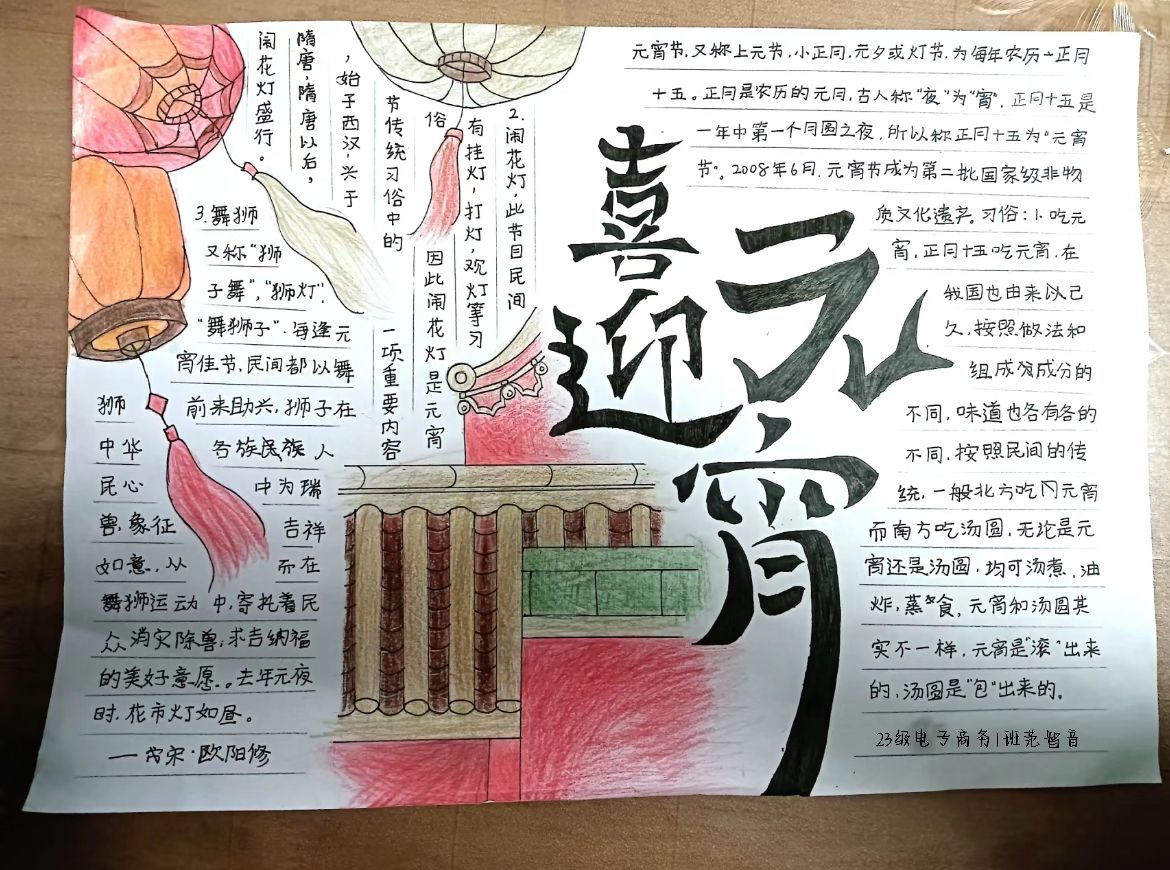 喜迎
元宵
元宵节，又称上元节，小正月，元夕或灯节，为每年农历一正月
十五。正月是农历的元月，古人称“夜”为“宵”，正月十五是
一年中第一个月圆之夜，所以称正月十五为“元宵
节”。2008年6月，元宵节成为第二批国家级非物
质文化遗产。习俗：1.吃元
宵，正月十五吃元宵，在
我国也由来以己
久，按照做法和
组成成分的
不同，味道也各有各的
不同，按照民间的传
统，一般北方吃元宵
而南方吃汤圆，无论是元
宵还是汤圆，均可汤煮，油
炸，蒸食，元宵和汤圆其
实不一样，元宵是“滚”出来
的，汤圆是“包”出来的。
23级电子商务1班
2.闹花灯，此节目民间
有挂灯，打灯，观灯等习
俗
因此闹花灯是元宵
节传统习俗中的
一项重要内容
，始于西汉，兴于
隋唐，隋唐以后，
闹花灯盛行。
3.舞狮
又称“狮
子舞”，“狮灯”，
“舞狮子”，每逢元
宵佳节，民间都以舞
狮 前来助兴，狮子在
中华 各族民族人
民心 中为瑞
兽，象征 吉祥
如意，从 而在
舞狮运动 中，寄托着民
众消灾除兽，求吉纳福
的美好意愿。。去年元夜
时，花市灯如昼。
一 宋·欧阳修